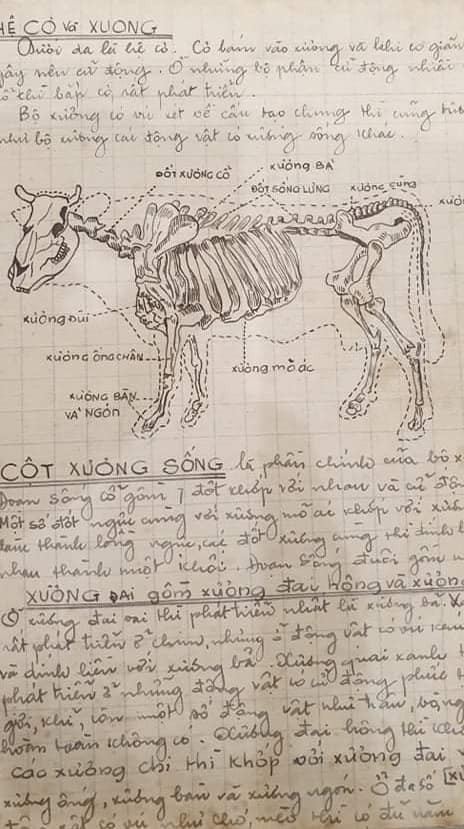 HỆ CƠ Và XƯƠNG
Dưới da là hệ cơ. Cơ bám vào xương và khi co giãn
gây nên cử động. Ở những bộ phận cử động nhiều
cơ chi bắp cơ rất phát triển.
Bộ xương có vú xét về cấu tạo chung thì cũng
như bộ xương các động vật có xương sống khác.
XƯƠNG BẢ
ĐỐT XƯƠNG CỔ
ĐỐT SỐNG LƯNG
XƯƠNG CÙNG
XƯƠNG ĐÙI
XƯƠNG ỐNG CHÂN
XƯƠNG MỎ ÁC
XƯƠNG BÀN
VÀ NGÓN
CỘT XƯƠNG SỐNG là phần chính của bộ
Đoạn sống cổ gồm 7 đốt khớp với nhau và cử
Một số đốt ngực cùng với xương mỏ ác khớp với
thành lồng ngực, các đốt xương cùng thì dính
nhau thành một khối. Đoạn sống đuôi gồm
XƯƠNG ĐAI gồm xương đai hông và xương
Ở xương đai vai thì phát triển nhất là xương bả.
rất phát triển ở chim, nhưng ở động vật có vú
và dính liền với xương bả. Xương quai xanh
phát triển ở những động vật có cử động phức
khỉ, còn một số động vật như
hoàn toàn không có. Xương đai hông thì
các xương chi thì khớp với xương đai
xương ống, xương bàn và xương ngón. Ở đa số
có vú như chó, mèo thì có đủ năm